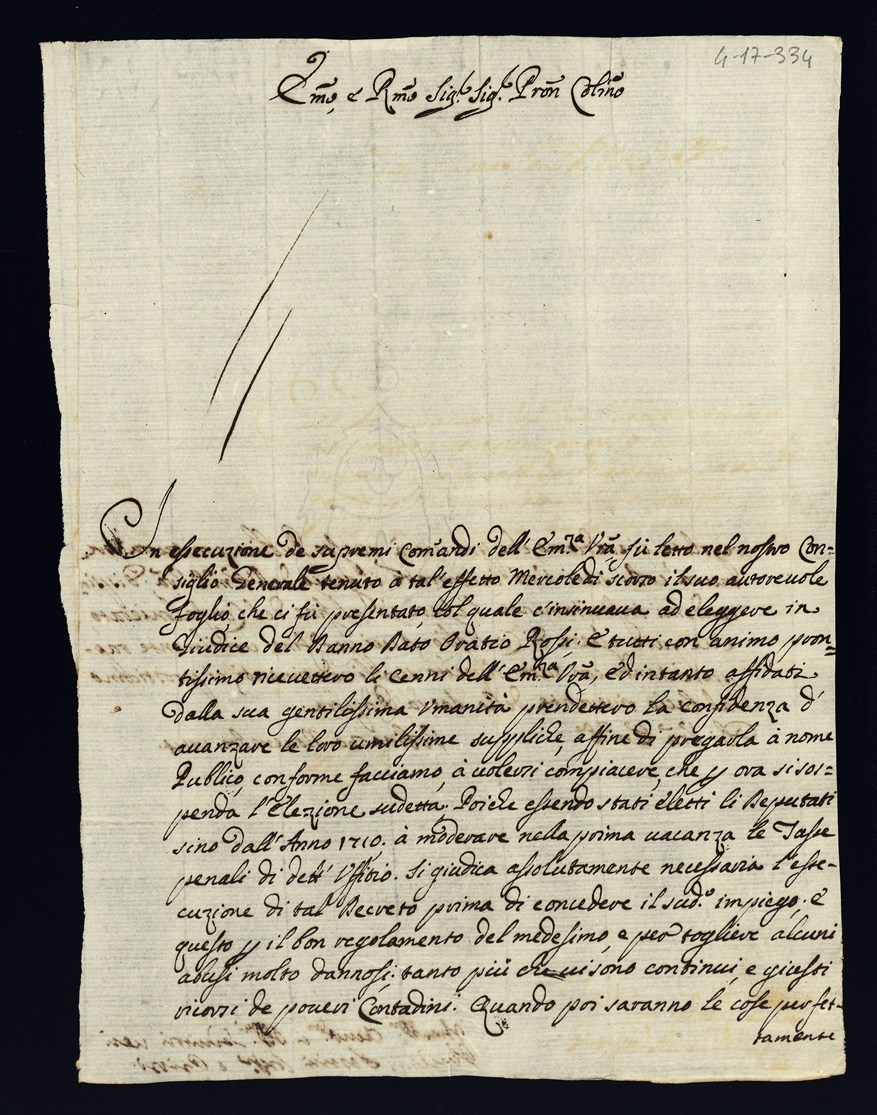 4-17-334
Em̃o, e Rm̃o Sig.r Sig.r Pron̄ Colm̃o
In essecuzione de supremi Com̃andi dell' Em.za Vr̃a fù letto nel nostro Con=
siglio Generale tenuto à tal' effetto Mercoledi scorso il suo autorevole
foglio, che ci fù presentato, col quale c'insinuava ad eleggere in
Giudice del Danno Dato Oratio Rossi. E tutti con animo pron=
tissimo ricevettero li cenni dell' Em.za Vr̃a, ed intanto affidati
dalla sua gentilissima Vmanità prendettero la confidenza d'
avanzare le loro umilissime suppliche, affine di pregarla à nome
Publico, conforme facciamo, à volersi compiacere, che p ora si sos=
penda l'Elezione sudetta. Poiche essendo stati eletti li Deputati
sino dall' Anno 1710. à moderare nella prima vacanza le Tasse
penali di dett' Vffitio. Si giudica assolutamente necessaria l'esse-
cuzione di tal Decreto prima di concedere il sud.o impiego. e
questo p il bon regolamento del medesimo, e per togliere alcuni
abusi molto dannosi. tanto più che vi sono continui, e giusti
ricorsi de poveri Contadini. Quando poi saranno le cose perfet-
tamente